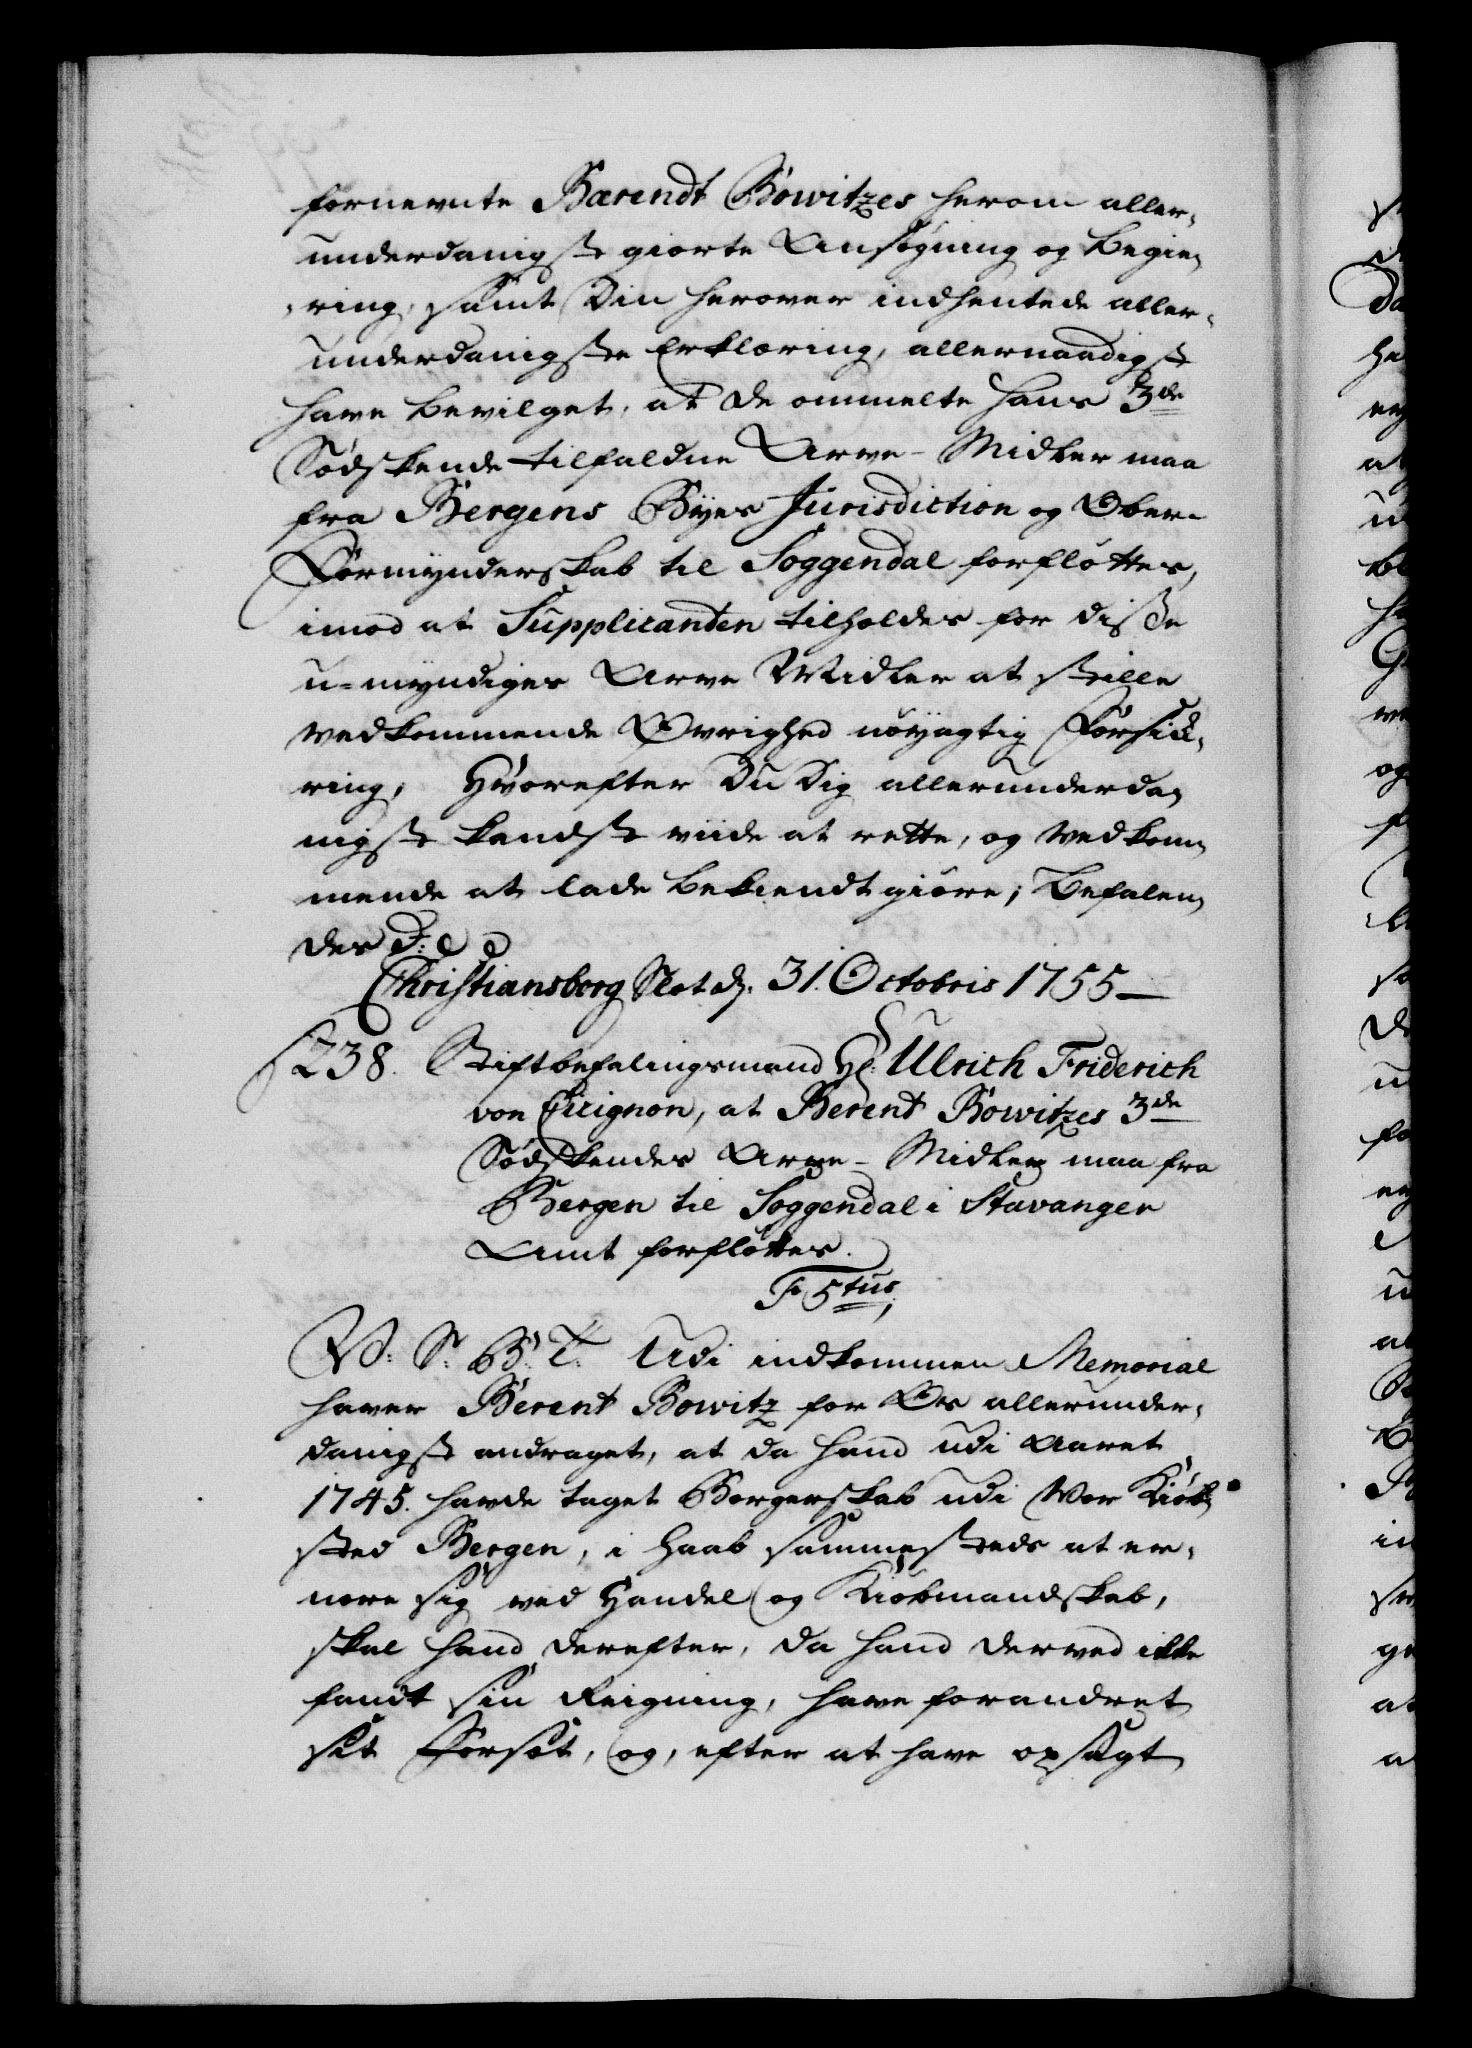 fornevnte Bærendt Bowitzes herom aller-
underdanigste giorte Ansøgning og Begie-
ring, samt Din herover indhentede aller-
underdanigste Erklæring, allernaadigst
have bevilget, at de ommelte hans 3de
Sødskende tilfaldne Arve-Midler maa
fra Bergens Byes Jurisdiction og Ober-
Formynderskab til Soggendal forfløttes,
imod at Supplicanten tilholdes for disse
u-myndiges Arve Midler at stille
vedkommende Øvrighed nøyagtig Forsik-
ring, Hvorefter Du Dig allerunderda-
nigst kandst viide at rette, og Vedkom-
mende at lade bekiendtgiøre; Befalen-
des D:
Christiansborg Slot d. 31. Octobris 1755
238. Stiftbefalingsmand Hr: Ulrich Friderich
von Cicignon, at Berent Bowitzes 3de
Sødskendes Arve-Midler maa fra
Bergen til Soggendal i Stavanger
Amt forfløttes.
F 5tus
V: S: B: T: Udi indkommen Memorial
haver Berent Bowitz for Os allerunder-
danigst andraget, at da hand udi Aaret
1745. havde taget Borgerskab udi Vor Kiøb-
sted Bergen, i Haab sammesteds at er-
nære sig ved Handel og Kiøbmandskab,
skal hand derefter, da hand derved ikke
fandt sin Reigning, have forandret
sit Forsæt, og, efter at have opsagt